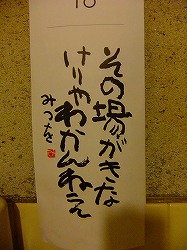 10
その場がきな
けりやわかんねえ
みつを